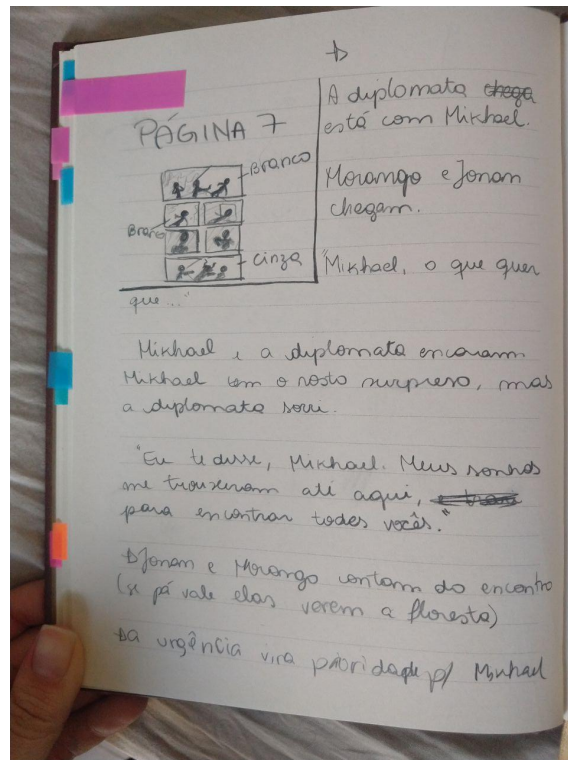 PÁGINA 7
Branco
Branco
Cinza
A diplomata chega
está com Mikhael.
Morango e Jonam
chegam.
"Mikhael, o que quer
que..."
Mikhael e a diplomata encaram.
Mikhael tem o rosto surpreso, mas
a diplomata sorri.
"Eu te disse, Mikhael. Meus sonhos
me trouxeram até aqui,
para encontrar todes vocês."
Jonam e Morango contam do encontro
(se pá vale elas verem a floresta)
A urgência vira prioridade p/ Mikhael